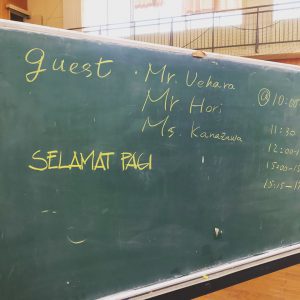 guest · Mr. Uehara
Mr Hori
Ms. Kanazawa
SELAMAT PAGI
10:00
11:30
12:00-1
15:00-1
15:15-1